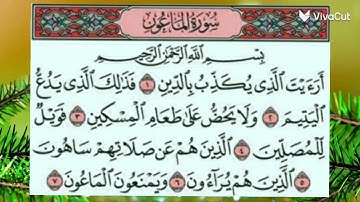 VivaCut
سُورَةُ الْمَاعُونِ
بِسْمِ اللَّهِ الرَّحْمَٰنِ الرَّحِيمِ
أَرَءَيْتَ ٱلَّذِي يُكَذِّبُ بِٱلدِّينِ ١ فَذَٰلِكَ ٱلَّذِي يَدُعُّ
ٱلْيَتِيمَ ٢ وَلَا يَحُضُّ عَلَىٰ طَعَامِ ٱلْمِسْكِينِ ٣ فَوَيْلٌ
لِّلْمُصَلِّينَ ٤ ٱلَّذِينَ هُمْ عَن صَلَاتِهِمْ سَاهُونَ
٥ ٱلَّذِينَ هُمْ يُرَآءُونَ ٦ وَيَمْنَعُونَ ٱلْمَاعُونَ ٧